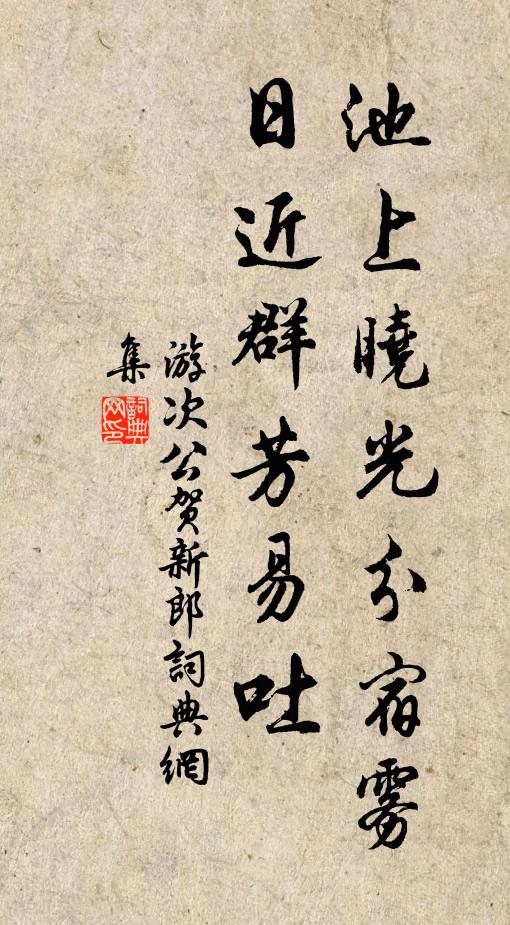 池上曉光分宿霧
日近群芳易吐
游次公賀新郎詞典網
集
詞典網印